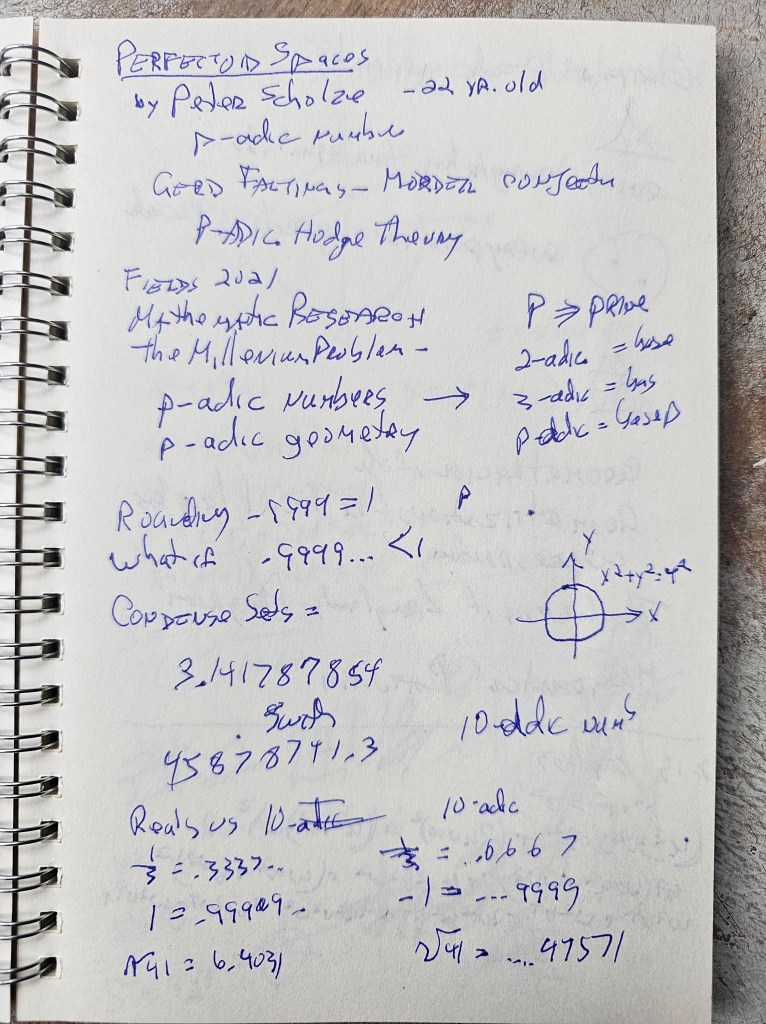 PERFECTOID Spaces
by Peter Scholze - 22 YR. old
p-adic number
GERD FALTINGS - MORDELL conjectu
P-ADIC Hodge Theory
FIELDS 2021
Mathematic RESEARCH
the Millenium Problem -
P ⇒ PRIME
2-adic = base
p-adic numbers →
3-adic = bas
p-adic geometry
p-adic = base p
Rounding .9999 = 1
P
what if .9999... < 1
Y
X
CONDENSE Sets =
3.141787854
Switch
10-adic num s
45878741.3
Reals vs 10-adic
10-adic
1/3 = .3333...
1/3 = ..6667
1 = .99999..
-1 = ...9999
√41 = 6.4031
√41 = ....47571